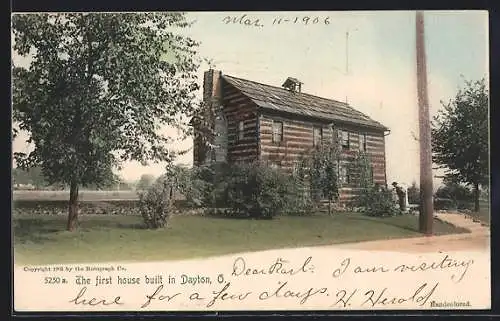 Mar. 11-1906
Copyright 1905 by the Rotograph Co.
5250 a. The first house built in Dayton, O.
Dear Karl, I am visiting
here for a few days. H. Herold
Handcolored.